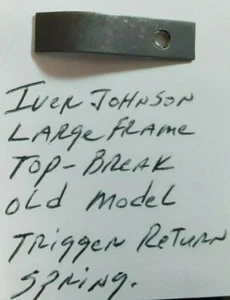 IVER JOHNSON
LARGE FRAME
TOP-BREAK
OLD MODEL
TRIGGER RETURN
SPRING.